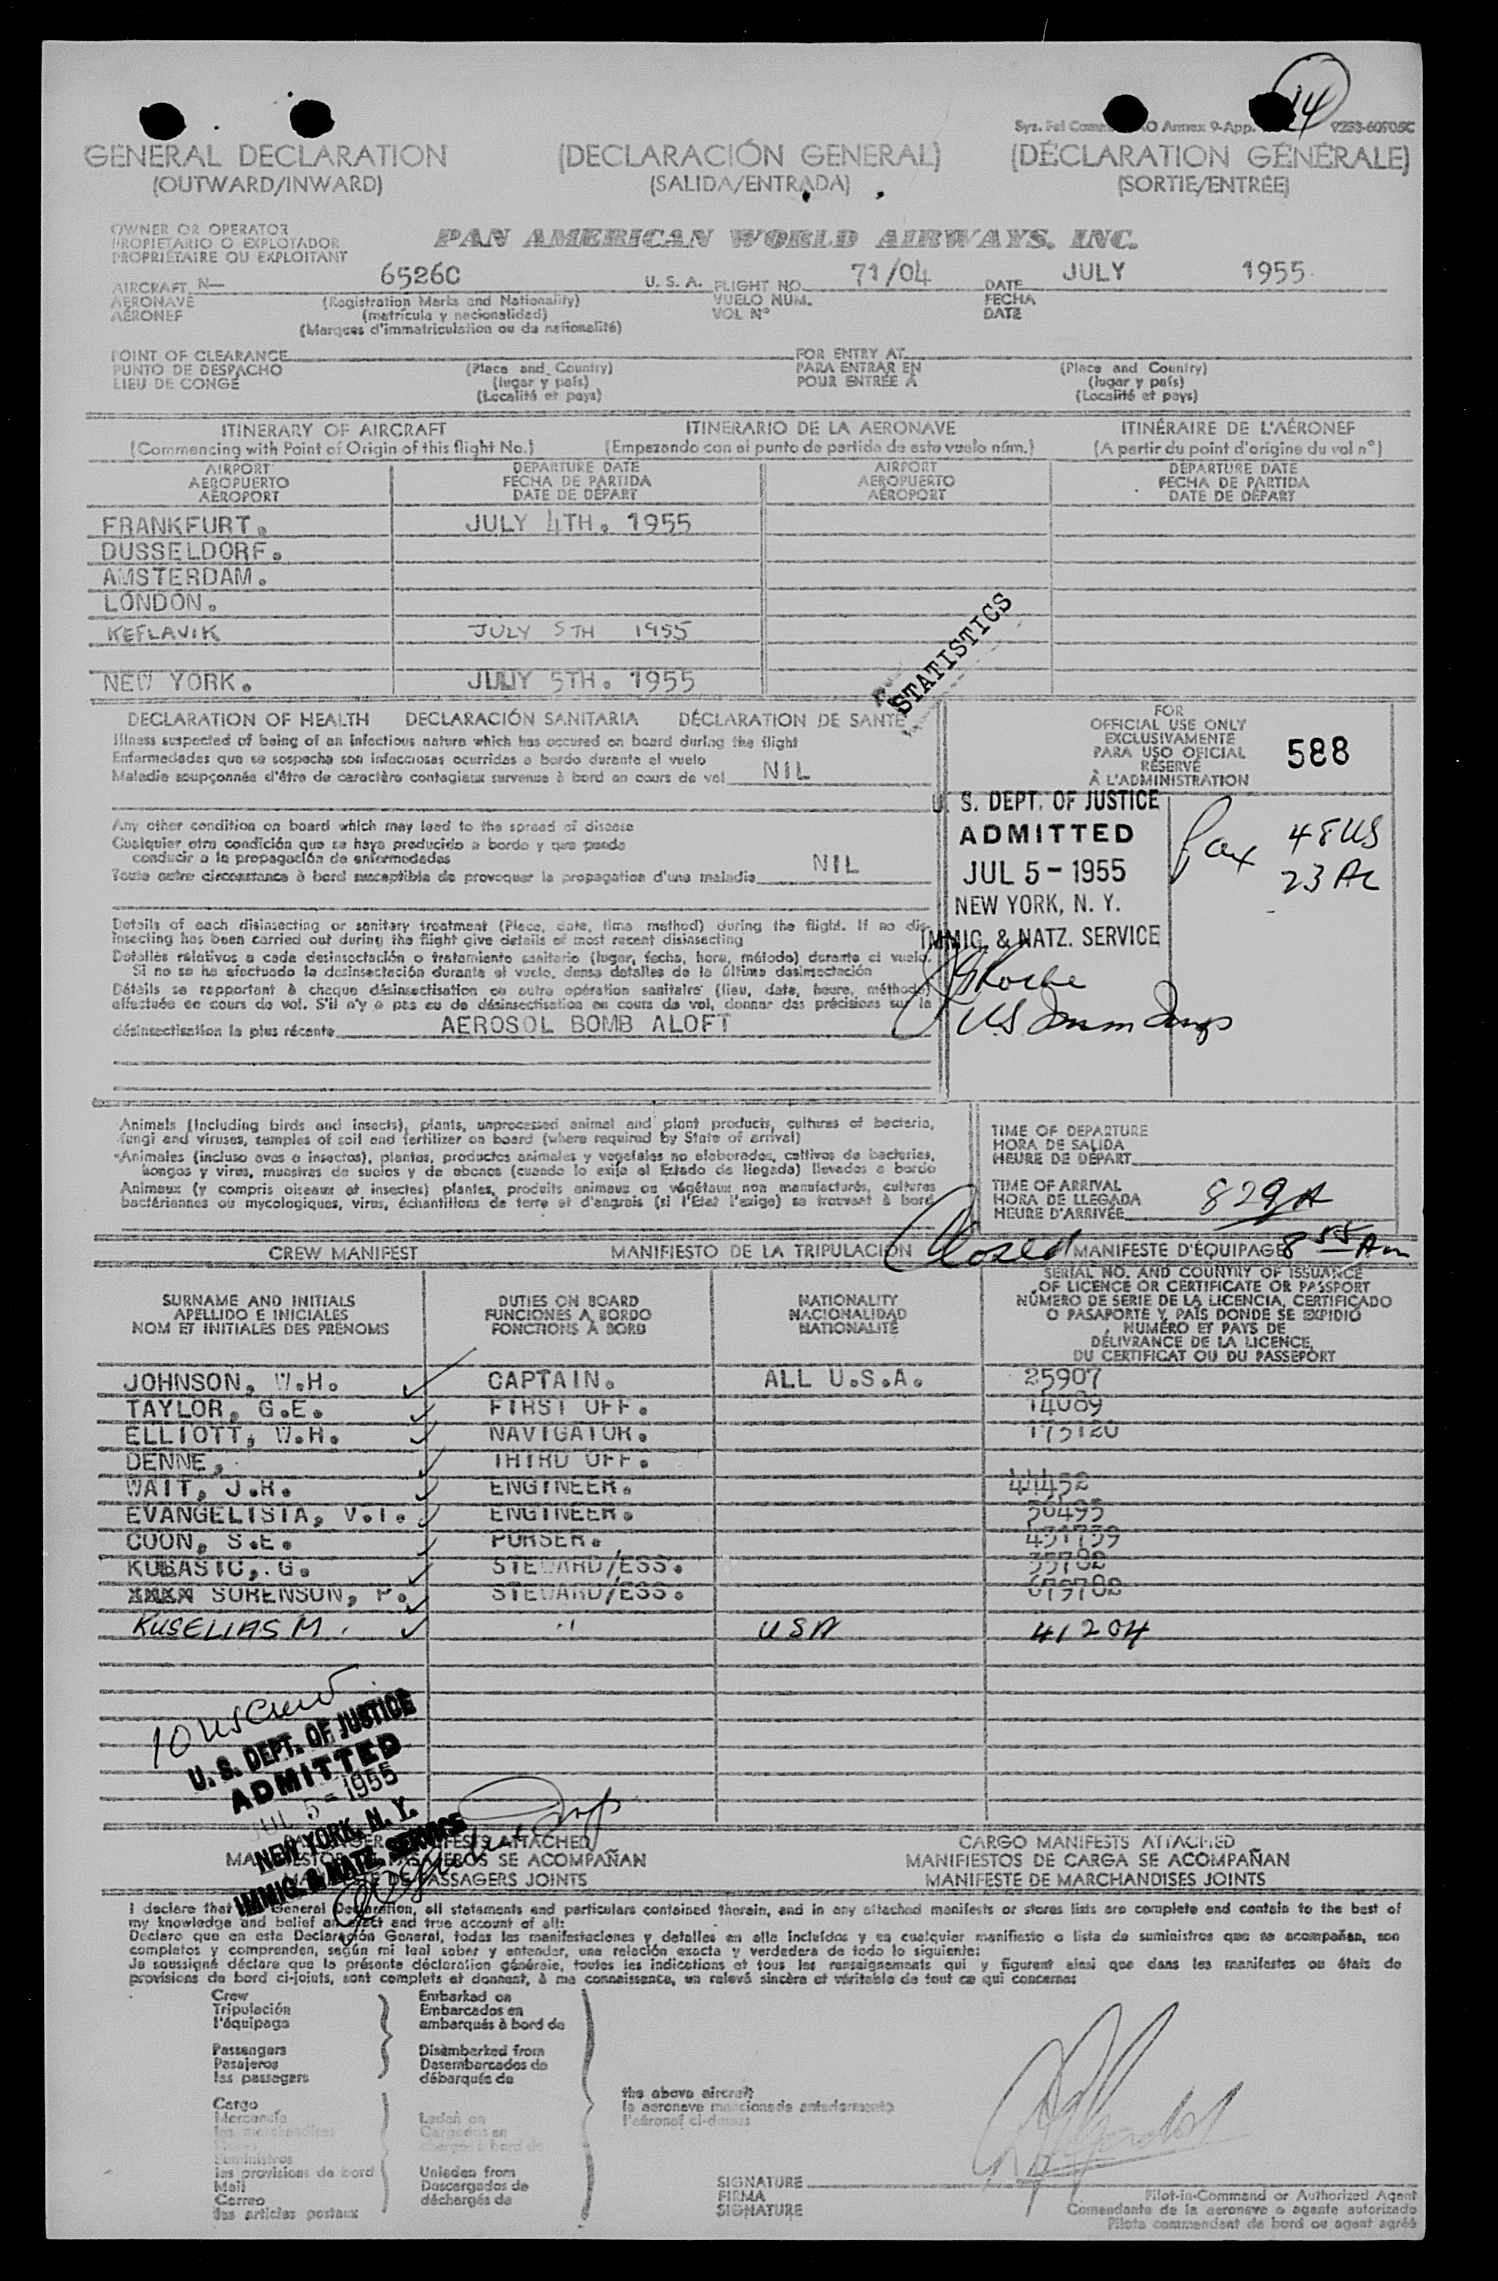 14
9253-60505C
GENERAL DECLARATION (DECLARACIÓN GENERAL) (DÉCLARATION GÉNÉRALE)
(OUTWARD/INWARD) (SALIDA/ENTRADA) (SORTIE/ENTRÉE)
OWNER OR OPERATOR
PROPIETARIO O EXPLOTADOR
PROPRIÉTAIRE OU EXPLOITANT
PAN AMERICAN WORLD AIRWAYS, INC.
AIRCRAFT N— 6526C U. S. A. FLIGHT NO. 71/04 DATE JULY 1955.
AERONAVE (Registration Marks and Nationality) VUELO NUM. FECHA
AÉRONEF (matrícula y nacionalidad) VOL N° DATE
(Marques d'immatriculation ou de nationalité)
POINT OF CLEARANCE FOR ENTRY AT
PUNTO DE DESPACHO (Place and Country) PARA ENTRAR EN (Place and Country)
LIEU DE CONGÉ (lugar y país) POUR ENTRÉE À (lugar y país)
(Localité et pays) (Localité et pays)
ITINERARY OF AIRCRAFT ITINERARIO DE LA AERONAVE ITINÉRAIRE DE L'AÉRONEF
(Commencing with Point of Origin of this flight No.) (Empezando con el punto de partida de este vuelo núm.) (A partir du point d'origine du vol n°)
AIRPORT DEPARTURE DATE AIRPORT DEPARTURE DATE
AEROPUERTO FECHA DE PARTIDA AEROPUERTO FECHA DE PARTIDA
AÉROPORT DATE DE DÉPART AÉROPORT DATE DE DÉPART
FRANKFURT. JULY 4TH. 1955
DUSSELDORF.
AMSTERDAM.
LONDON.
KEFLAVIK JULY 5TH 1955
NEW YORK. JULY 5TH. 1955
STATISTICS
DECLARATION OF HEALTH DECLARACIÓN SANITARIA DÉCLARATION DE SANTÉ
Illness suspected of being of an infectious nature which has occured on board during the flight
Enfermedades que se sospecha son infecciosas ocurridas a bordo durante el vuelo
Maladie soupçonnée d'être de caractère contagieux survenue à bord en cours de vol NIL
Any other condition on board which may lead to the spread of disease
Cualquier otra condición que se haya producido a bordo y que pueda
conducir a la propagación de enfermedades
Toute autre circonstance à bord susceptible de provoquer la propagation d'une maladie NIL
Details of each disinsecting or sanitary treatment (Place, date, time method) during the flight. If no dis-
insecting has been carried out during the flight give details of most recent disinsecting
Detalles relativos a cada desinsectación o tratamiento sanitario (lugar, fecha, hora, método) durante el vuelo.
Si no se ha efectuado la desinsectación durante el vuelo, dense detalles de la última desinsectación
Détails se rapportant à chaque désinsectisation ou autre opération sanitaire (lieu, date, heure, méthode)
effectuée en cours de vol. S'il n'y a pas eu de désinsectisation en cours de vol, donner des précisions sur la
désinsectisation la plus récente AEROSOL BOMB ALOFT
FOR
OFFICIAL USE ONLY
EXCLUSIVAMENTE
PARA USO OFICIAL
RÉSERVÉ
À L'ADMINISTRATION
588
U. S. DEPT. OF JUSTICE
ADMITTED
JUL 5 - 1955
NEW YORK, N. Y.
IMMIG. & NATZ. SERVICE
Pax 48 US
23 AL
US Imm Insp
Animals (including birds and insects), plants, unprocessed animal and plant products, cultures of bacteria,
fungi and viruses, samples of soil and fertilizer on board (where required by State of arrival)
Animales (incluso aves e insectos), plantas, productos animales y vegetales no elaborados, cultivos de bacterias,
hongos y virus, muestras de suelos y de abonos (cuando lo exija el Estado de llegada) llevados a bordo
Animaux (y compris oiseaux et insectes) plantes, produits animaux ou végétaux non manufacturés, cultures
bactériennes ou mycologiques, virus, échantillons de terre et d'engrais (si l'Etat l'exige) se trouvant à bord
TIME OF DEPARTURE
HORA DE SALIDA
HEURE DE DÉPART
TIME OF ARRIVAL
HORA DE LLEGADA
HEURE D'ARRIVÉE 829A
Closed 8 55 Am
CREW MANIFEST MANIFIESTO DE LA TRIPULACIÓN MANIFESTE D'ÉQUIPAGE
SURNAME AND INITIALS
APELLIDO E INICIALES
NOM ET INITIALES DES PRÉNOMS
DUTIES ON BOARD
FUNCIONES A BORDO
FONCTIONS À BORD
NATIONALITY
NACIONALIDAD
NATIONALITÉ
SERIAL NO. AND COUNTRY OF ISSUANCE
OF LICENCE OR CERTIFICATE OR PASSPORT
NÚMERO DE SERIE DE LA LICENCIA, CERTIFICADO
O PASAPORTE Y PAÍS DONDE SE EXPIDIÓ
NUMÉRO ET PAYS DE
DÉLIVRANCE DE LA LICENCE,
DU CERTIFICAT OU DU PASSEPORT
JOHNSON, W.H. CAPTAIN. ALL U.S.A. 25907
TAYLOR, G.E. FIRST OFF. 14089
ELLIOTT, W.H. NAVIGATOR. 175120
DENNE, THIRD OFF.
WAIT, J.H. ENGINEER. 44452
EVANGELISTA, V.T. ENGINEER. 56495
COON, S.E. PURSER. 451759
KUBASIC, G. STEWARD/ESS. 35782
XXXX SORENSON, P. STEWARD/ESS. 679782
KUSELIAS M. " USA 41204
10 US Crew
U. S. DEPT. OF JUSTICE
ADMITTED
JUL 5 - 1955
NEW YORK, N. Y.
IMMIG. & NATZ. SERVICE
ATTACHED CARGO MANIFESTS ATTACHED
SE ACOMPAÑAN MANIFIESTOS DE CARGA SE ACOMPAÑAN
PASSAGERS JOINTS MANIFESTE DE MARCHANDISES JOINTS
I declare that General Declaration, all statements and particulars contained therein, and in any attached manifests or stores lists are complete and contain to the best of
my knowledge and belief an exact and true account of all:
Declaro que en esta Declaración General, todas las manifestaciones y detalles en ella incluídos y en cualquier manifiesto o lista de suministros que se acompañan, son
completos y comprenden, según mi leal saber y entender, una relación exacta y verdadera de todo lo siguiente:
Je soussigné déclare que la présente déclaration générale, toutes les indications et tous les renseignements qui y figurent ainsi que dans les manifestes ou états de
provisions de bord ci-joints, sont complets et donnent, à ma connaissance, un relevé sincère et véritable de tout ce qui concerne:
Crew Embarked on
Tripulación Embarcados en
l'équipage embarqués à bord de
Passengers Disembarked from
Pasajeros Desembarcados de
les passagers débarqués de
Cargo
Mercancía Laden on
les marchandises Cargados en
Stores chargés à bord de
Suministros
les provisions de bord Unladen from
Mail Descargados de
Correo déchargés de
les articles postaux
the above aircraft
la aeronave mencionada anteriormente
l'aéronef ci-dessus
SIGNATURE
FIRMA
SIGNATURE
Pilot-in-Command or Authorized Agent
Comandante de la aeronave o agente autorizado
Pilote commandant de bord ou agent agréé